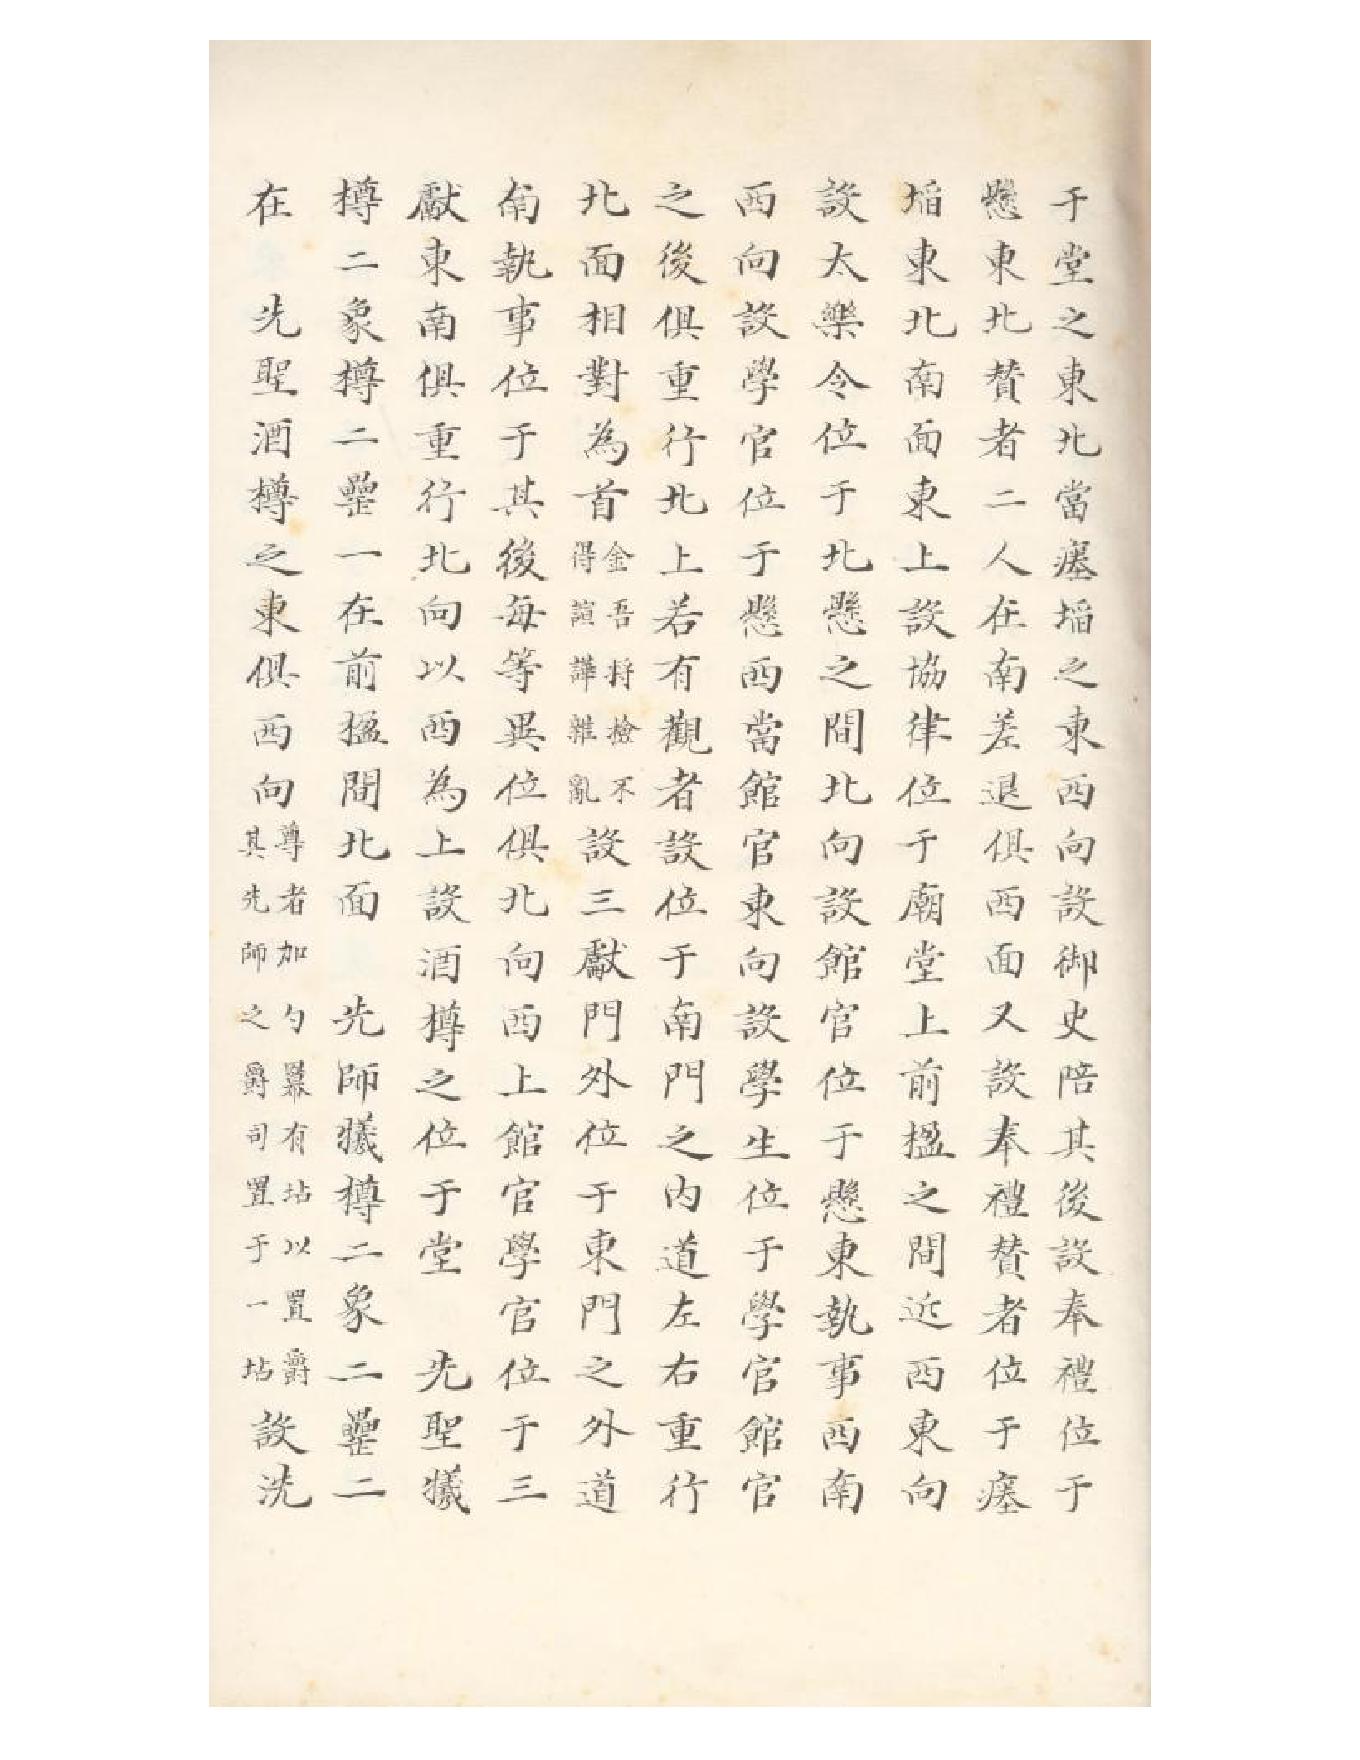 于堂之東北當瘞埳之東西向設御史陪其後設奉禮位于
懸東北賛者二人在南差退俱西面又設奉禮賛者位于瘞
埳東北南面東上設協律位于廟堂上前楹之間近西東向
設太樂令位于北懸之間北向設館官位于懸東執事西南
西向設學官位于懸西當館官東向設學生位于學官館官
之後俱重行北上若有觀者設位于南門之内道左右重行
北面相對為首金吾將檢不得諠譁雜亂設三獻門外位于東門之外道
南執事位于其後每等異位俱北向西上館官學官位于三
獻東南俱重行北向以西為上設酒樽之位于堂 先聖犧
樽二象樽二罍一在前楹間北面 先師犧樽二象二罍二
在 先聖酒樽之東俱西向尊者加勺羃有坫以置爵其先師之爵司置于一坫設洗